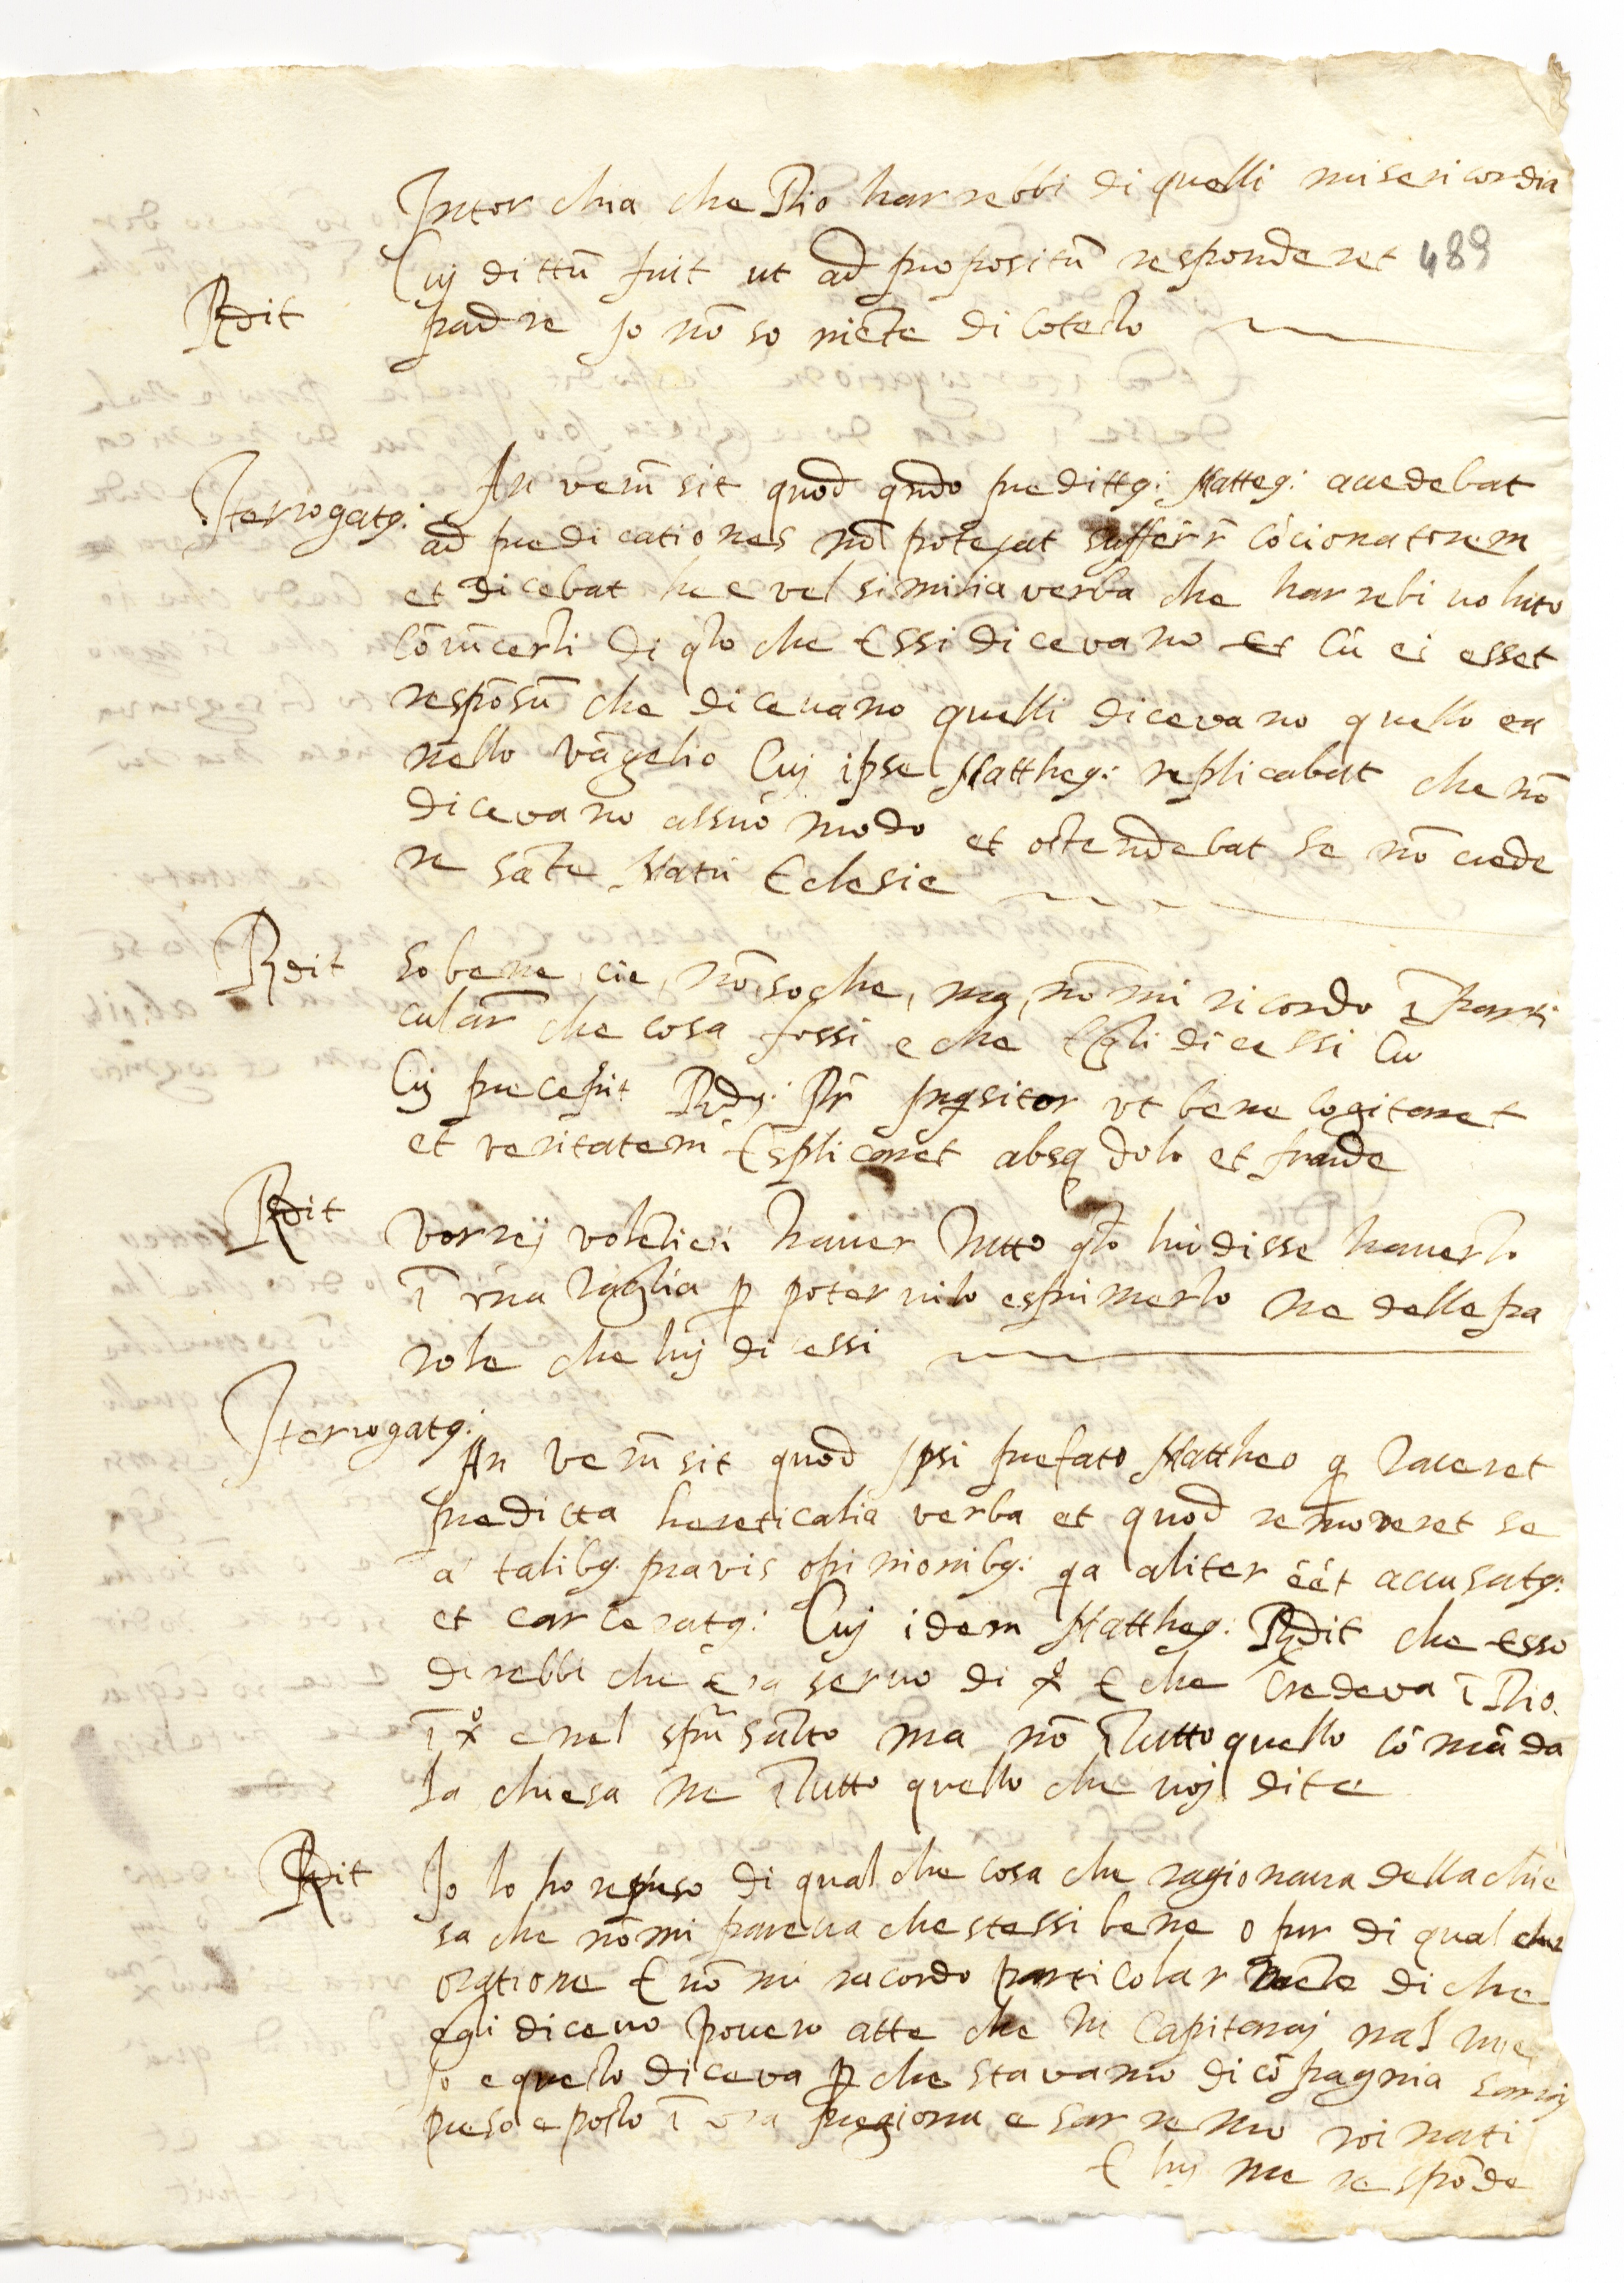 Intorchia che Dio harrebbi di quelli misericordia
Cuj dittū fuit ut ad propositū responderet 489
Rdit padre jo nō so niēte di cotesto
Iterrogatꝰ: An verū sit quod qn̄do predittꝰ: Matteꝰ: accedebat
ad predicationes nō poterat sufferr̄ cōcionatorem
et dicebat hec vel similia verba che harrebi voluto
cōvīcerli di q̄lo che Essi dicevano et Cū ei esset
respōsū che dicevano quelli dicevano quello era
nello vāgelio Cuj ipse Mattheꝰ: replicabat che nō
dicevano assuo modo et ostendebat se nō crede
re sāte Matri Eclesie
Rdit So bene cie, nō so che, ma, nō mi ricordo ī parti
cular̄ che cosa fossi e che Egli dicessi
Cuj precepit Rdꝰ: Pr̄ Inqsitor vt bene cogitaret
et veritatem Esplicaret absq dolo et fraude
Rdit Vorrej volētieri haver tutto q̄lo lui disse haverlo
ī vna taglia ꝑ potervilo esprimerlo ne delle pa
role che luj dicessi
Iterrogatꝰ: An verū sit quod ipsi prefato Mattheo ꝙ taceret
preditta hereticalia verba et quod removeret se
a talibꝰ: pravis opinionibꝰ: qa aliter eēt accusatꝰ:
et carceratꝰ: Cuj idem Mattheꝰ: Rdit che Esso
direbbi che Era servo di x̊ E che Credeva ī Dio.
ī x̊ e nel spū sāto ma nō ī tutto quello cōmāda
la chiesa ne ī tutto quello che voj dite
Rdit Io lo ho represo di qual che cosa che ragionava della chie
sa che nō mi pareva che stessi bene o pur di qual che
oratione E nō mi racordo particolar mēte di che
egli dicevo povero atte che tu capiteraj mal
Io e questo diceva ꝑ che stavamo di cōpagnia saraj
preso e posto ī vna pregione e sarremo roinati
E luj me respōde